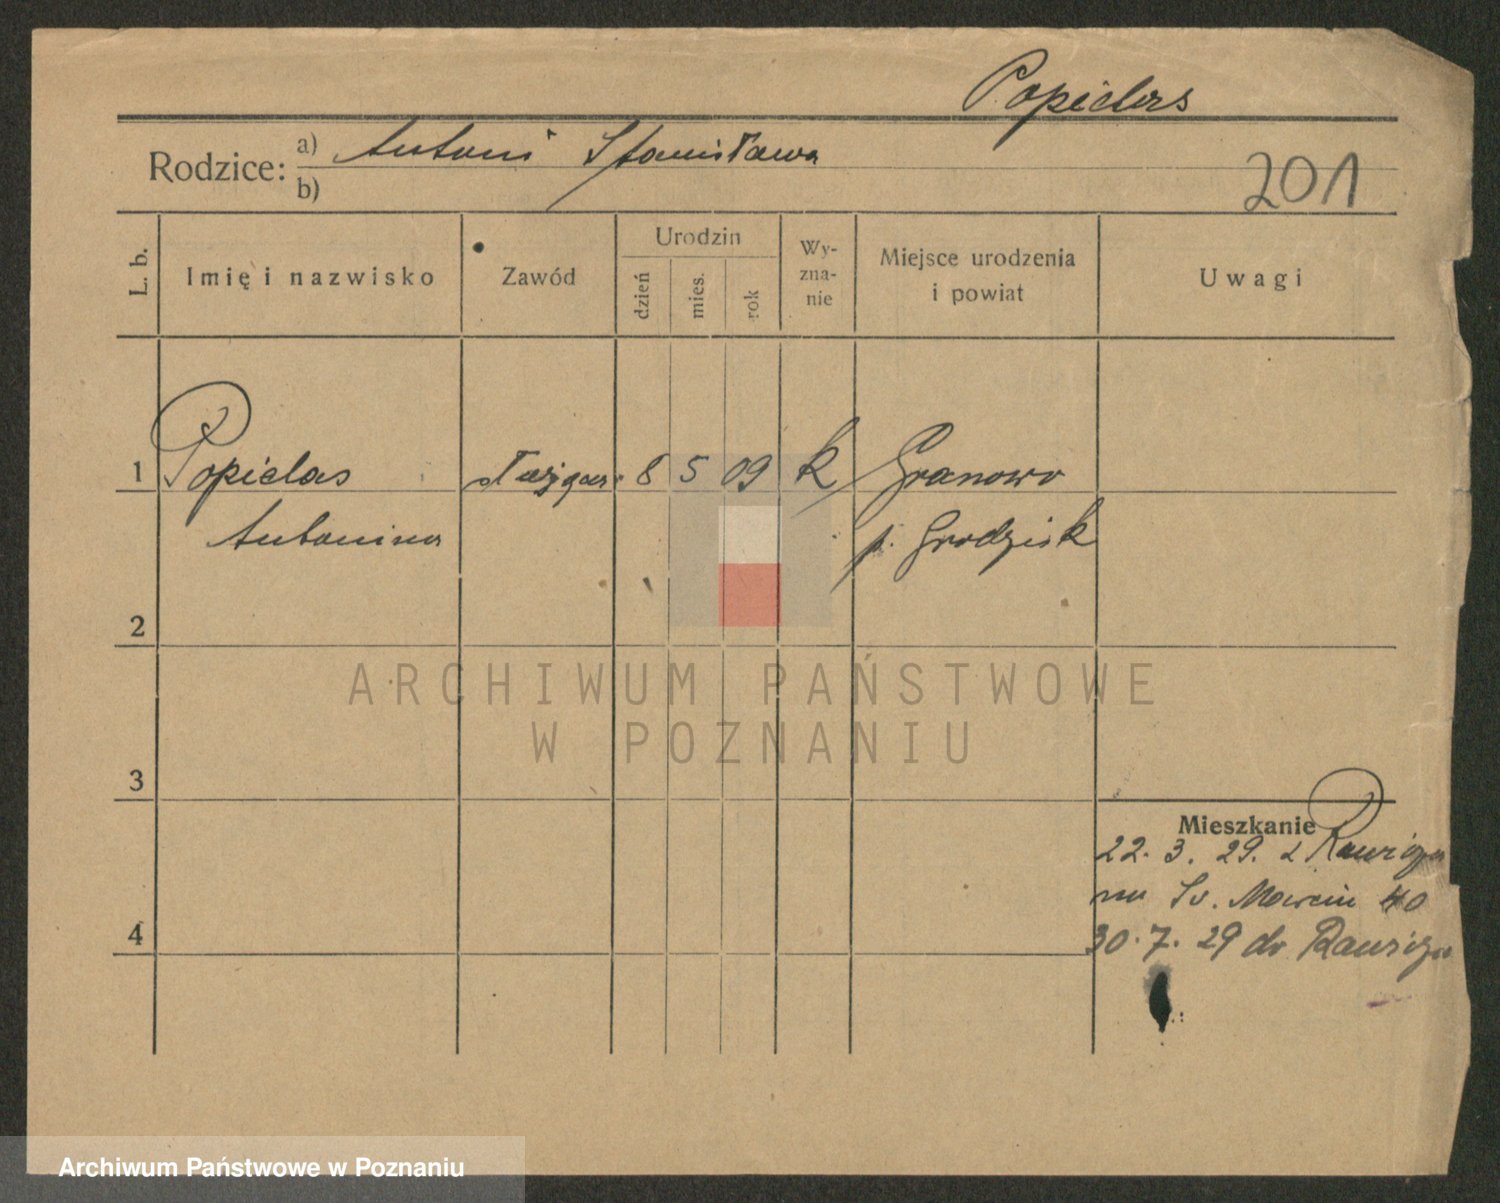 Popielas
Rodzice: a) Antoni Stanisława
b)
201
L. b.
Imię i nazwisko
Zawód
Urodzin
dzień
mies.
rok
Wy-
zna-
nie
Miejsce urodzenia
i powiat
Uwagi
1 Popielas 8 5 09 k Granowo
Antonina p. Grodzisk
2
3
4
Mieszkanie
22. 3. 29. z
na Św. Marcin 40
30. 7. 29 do
ARCHIWUM PAŃSTWOWE
W POZNANIU
Archiwum Państwowe w Poznaniu